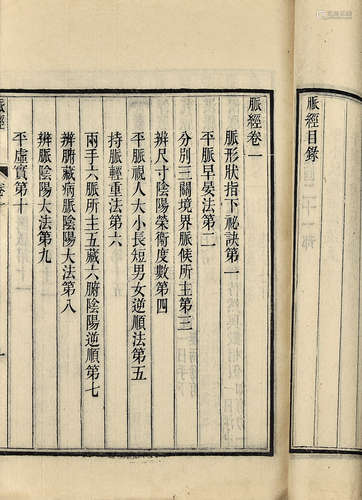 脈經目錄
脈經卷一
脈形狀指下祕訣第一
平脈早晏法第二
分別三關境界脈候所主第三
辨尺寸陰陽榮衞度數第四
平脈視人大小長短男女逆順法第五
持脈輕重法第六
兩手六脈所主五藏六腑陰陽逆順第七
辨腑藏病脈陰陽大法第八
辨脈陰陽大法第九
平虛實第十
脈經
卷一